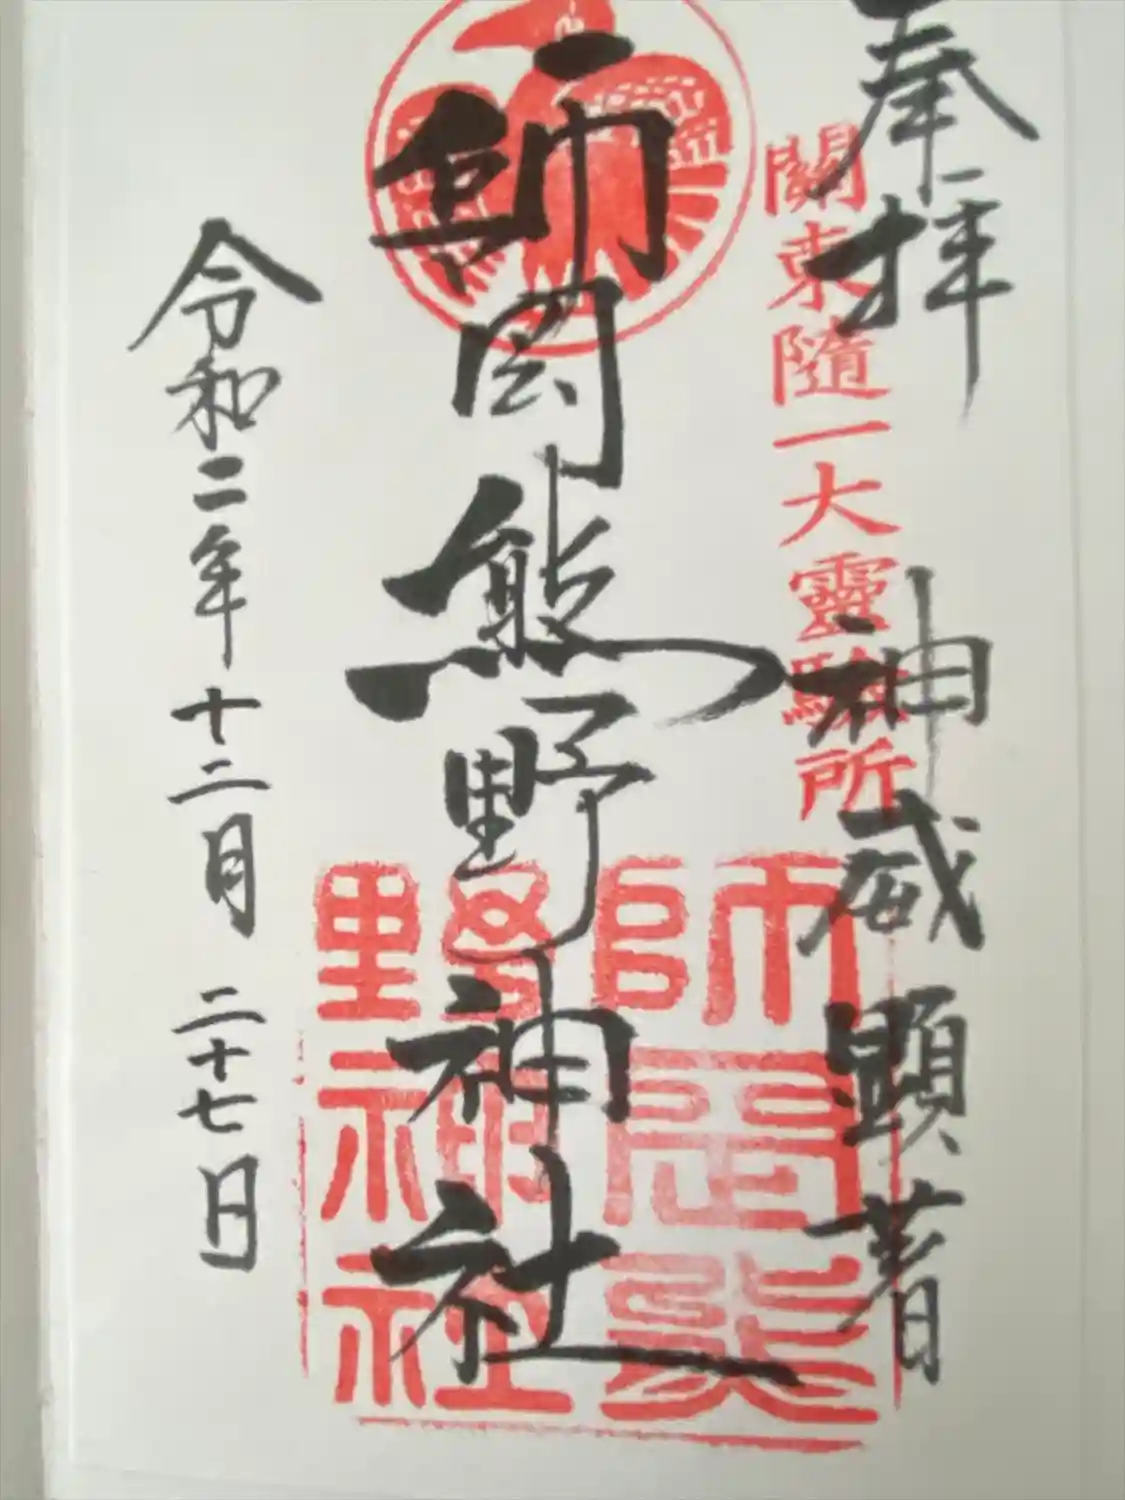 奉拝
關東随一大靈驗所
神威顕著
師岡熊野神社
師岡熊
野神社
令和二年十二月二十七日